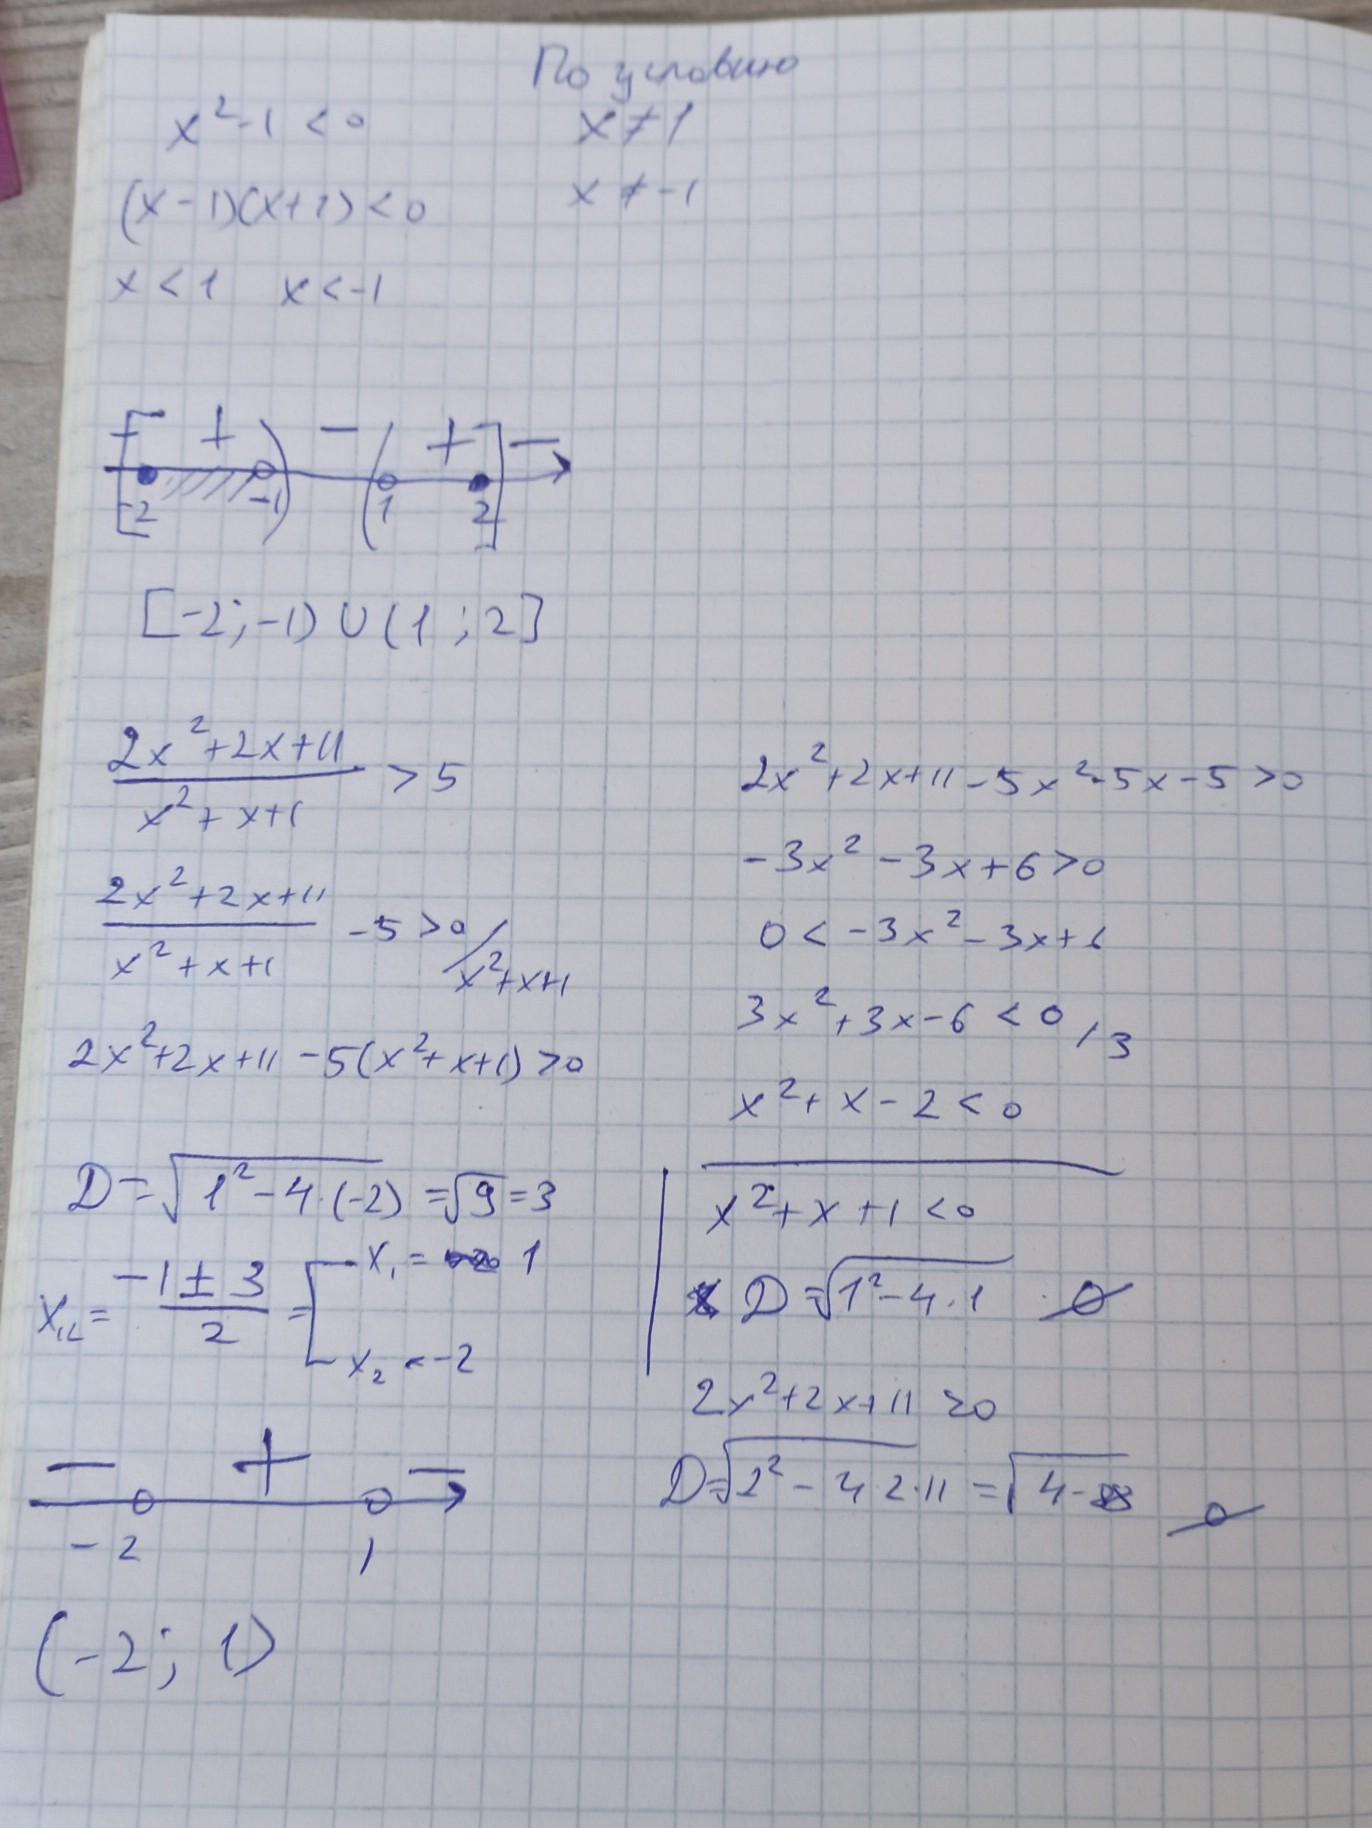 По условию
x² - 1 < 0
x ≠ 1
(x - 1)(x + 1) < 0
x ≠ -1
x < 1 x < -1
- + - + -
-2 -1 1 2
[-2; -1) ∪ (1; 2]
(2x² + 2x + 11)/(x² + x + 1) > 5
(2x² + 2x + 11)/(x² + x + 1) - 5 > 0 / x² + x + 1
2x² + 2x + 11 - 5(x² + x + 1) > 0
2x² + 2x + 11 - 5x² - 5x - 5 > 0
-3x² - 3x + 6 > 0
0 < -3x² - 3x + 6
3x² + 3x - 6 < 0 / 3
x² + x - 2 < 0
D = √(1² - 4·(-2)) = √9 = 3
x₁₂ = (-1 ± 3)/2 = [ x₁ = 1
x₂ = -2
- + -
-2 1
(-2; 1)
x² + x + 1 < 0
D = √(1² - 4·1) ∅
2x² + 2x + 11 ≥ 0
D = √(2² - 4·2·11) = √(4 - 88) ∅